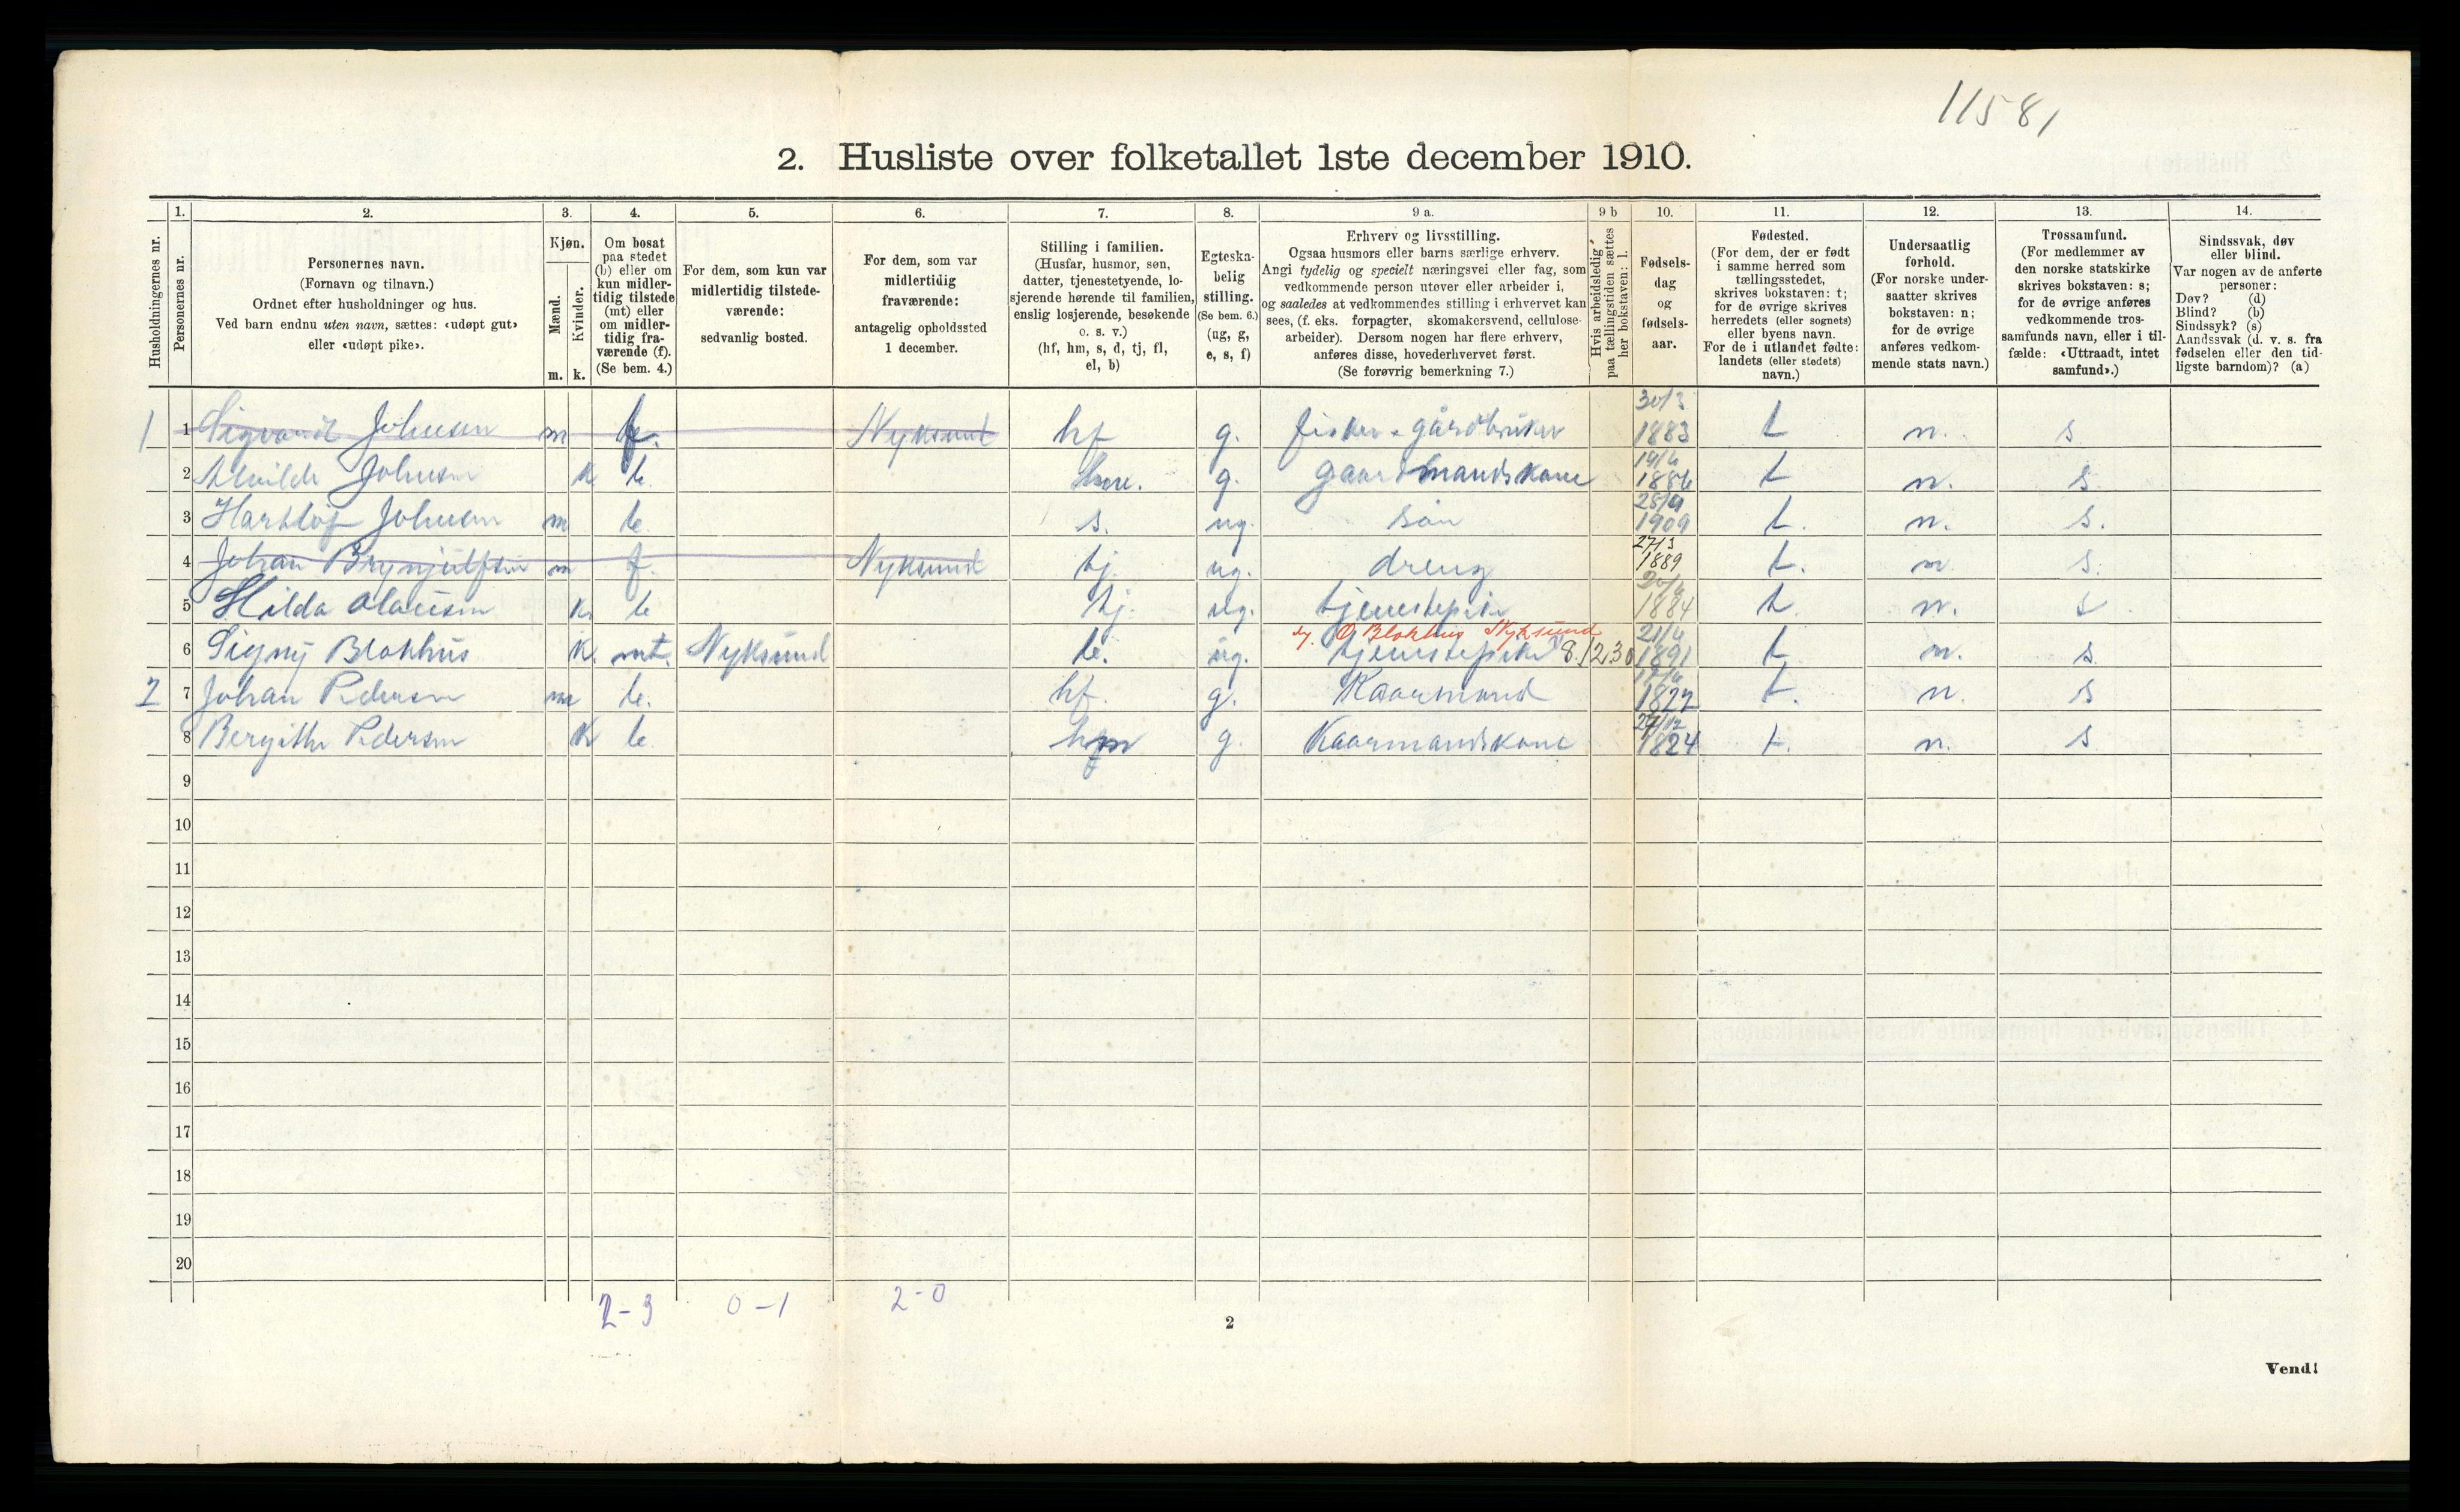 11581
2. Husliste over folketallet 1ste december 1910.
Husholdningernes nr.
1.
Personernes nr.
2.
Personernes navn.
(Fornavn og tilnavn.)
Ordnet efter husholdninger og hus.
Ved barn endnu uten navn, sættes: «udøpt gut»
eller «udøpt pike».
3.
Kjøn.
Mænd.
Kvinder.
m. k.
4.
Om bosat
paa stedet
(b) eller om
kun midler-
tidig tilstede
(mt) eller
om midler-
tidig fra-
værende (f).
(Se bem. 4.)
5.
For dem, som kun var
midlertidig tilstede-
værende:
sedvanlig bosted.
6.
For dem, som var
midlertidig
fraværende:
antagelig opholdssted
1 december.
7.
Stilling i familien.
(Husfar, husmor, søn,
datter, tjenestetyende, lo-
sjerende hørende til familien,
enslig losjerende, besøkende
o. s. v.)
(hf, hm, s, d, tj, fl,
el, b)
8.
Egteska-
belig
stilling.
(Se bem. 6.)
(ug, g,
e, s, f)
9 a.
Erhverv og livsstilling.
Ogsaa husmors eller barns særlige erhverv.
Angi tydelig og specielt næringsvei eller fag, som
vedkommende person utøver eller arbeider i,
og saaledes at vedkommendes stilling i erhvervet kan
sees, (f. eks. forpagter, skomakersvend, cellulose-
arbeider). Dersom nogen har flere erhverv,
anføres disse, hovederhvervet først.
(Se forøvrig bemerkning 7.)
9 b
Hvis arbeidsledig
paa tællingstiden sættes
her bokstaven: l.
10.
Fødsels-
dag
og
fødsels-
aar.
11.
Fødested.
(For dem, der er født
i samme herred som
tællingsstedet,
skrives bokstaven: t;
for de øvrige skrives
herredets (eller sognets)
eller byens navn.
For de i utlandet fødte:
landets (eller stedets)
navn.)
12.
Undersaatlig
forhold.
(For norske under-
saatter skrives
bokstaven: n;
for de øvrige
anføres vedkom-
mende stats navn.)
13.
Trossamfund.
(For medlemmer av
den norske statskirke
skrives bokstaven: s;
for de øvrige anføres
vedkommende tros-
samfunds navn, eller i til-
fælde: «Uttraadt, intet
samfund».)
14.
Sindssvak, døv
eller blind.
Var nogen av de anførte
personer:
Døv? (d)
Blind? (b)
Sindssyk? (s)
Aandssvak (d. v. s. fra
fødselen eller den tid-
ligste barndom)? (a)
1 1 Sigvardt Johnsen m f. Nyksund hf g. fisker & gårdbruker 30/3 1883 t n. s
2 Johnsen k b. g. gaardmandskone 1886 t n. s.
3 Johnsen m b. s. ug. søn 1909 t. n. s.
4 Johan Brynjulfsen m f. Nyksund tj. ug. dreng 27/3 1889 t. n. s.
5 Hilda Olausen k. b tj. ug. tjenestepike 1884 t. n. s
dg. O Blokhus Nyksund
6 Signy Blokhus k. mt. Nyksund b. ug. tjenestepike 8.1230 21/4 1891 t n. s.
2 7 Johan Pedersen m b. hf. g. Kaarmand 1827 t. n. s
8 Bergithe Pedersen k b. g. Kaarmandskone 27/12 1824 t. n. s
9
10
11
12
13
14
15
16
17
18
19
20
2-3 0-1 2-0
2
Vend!